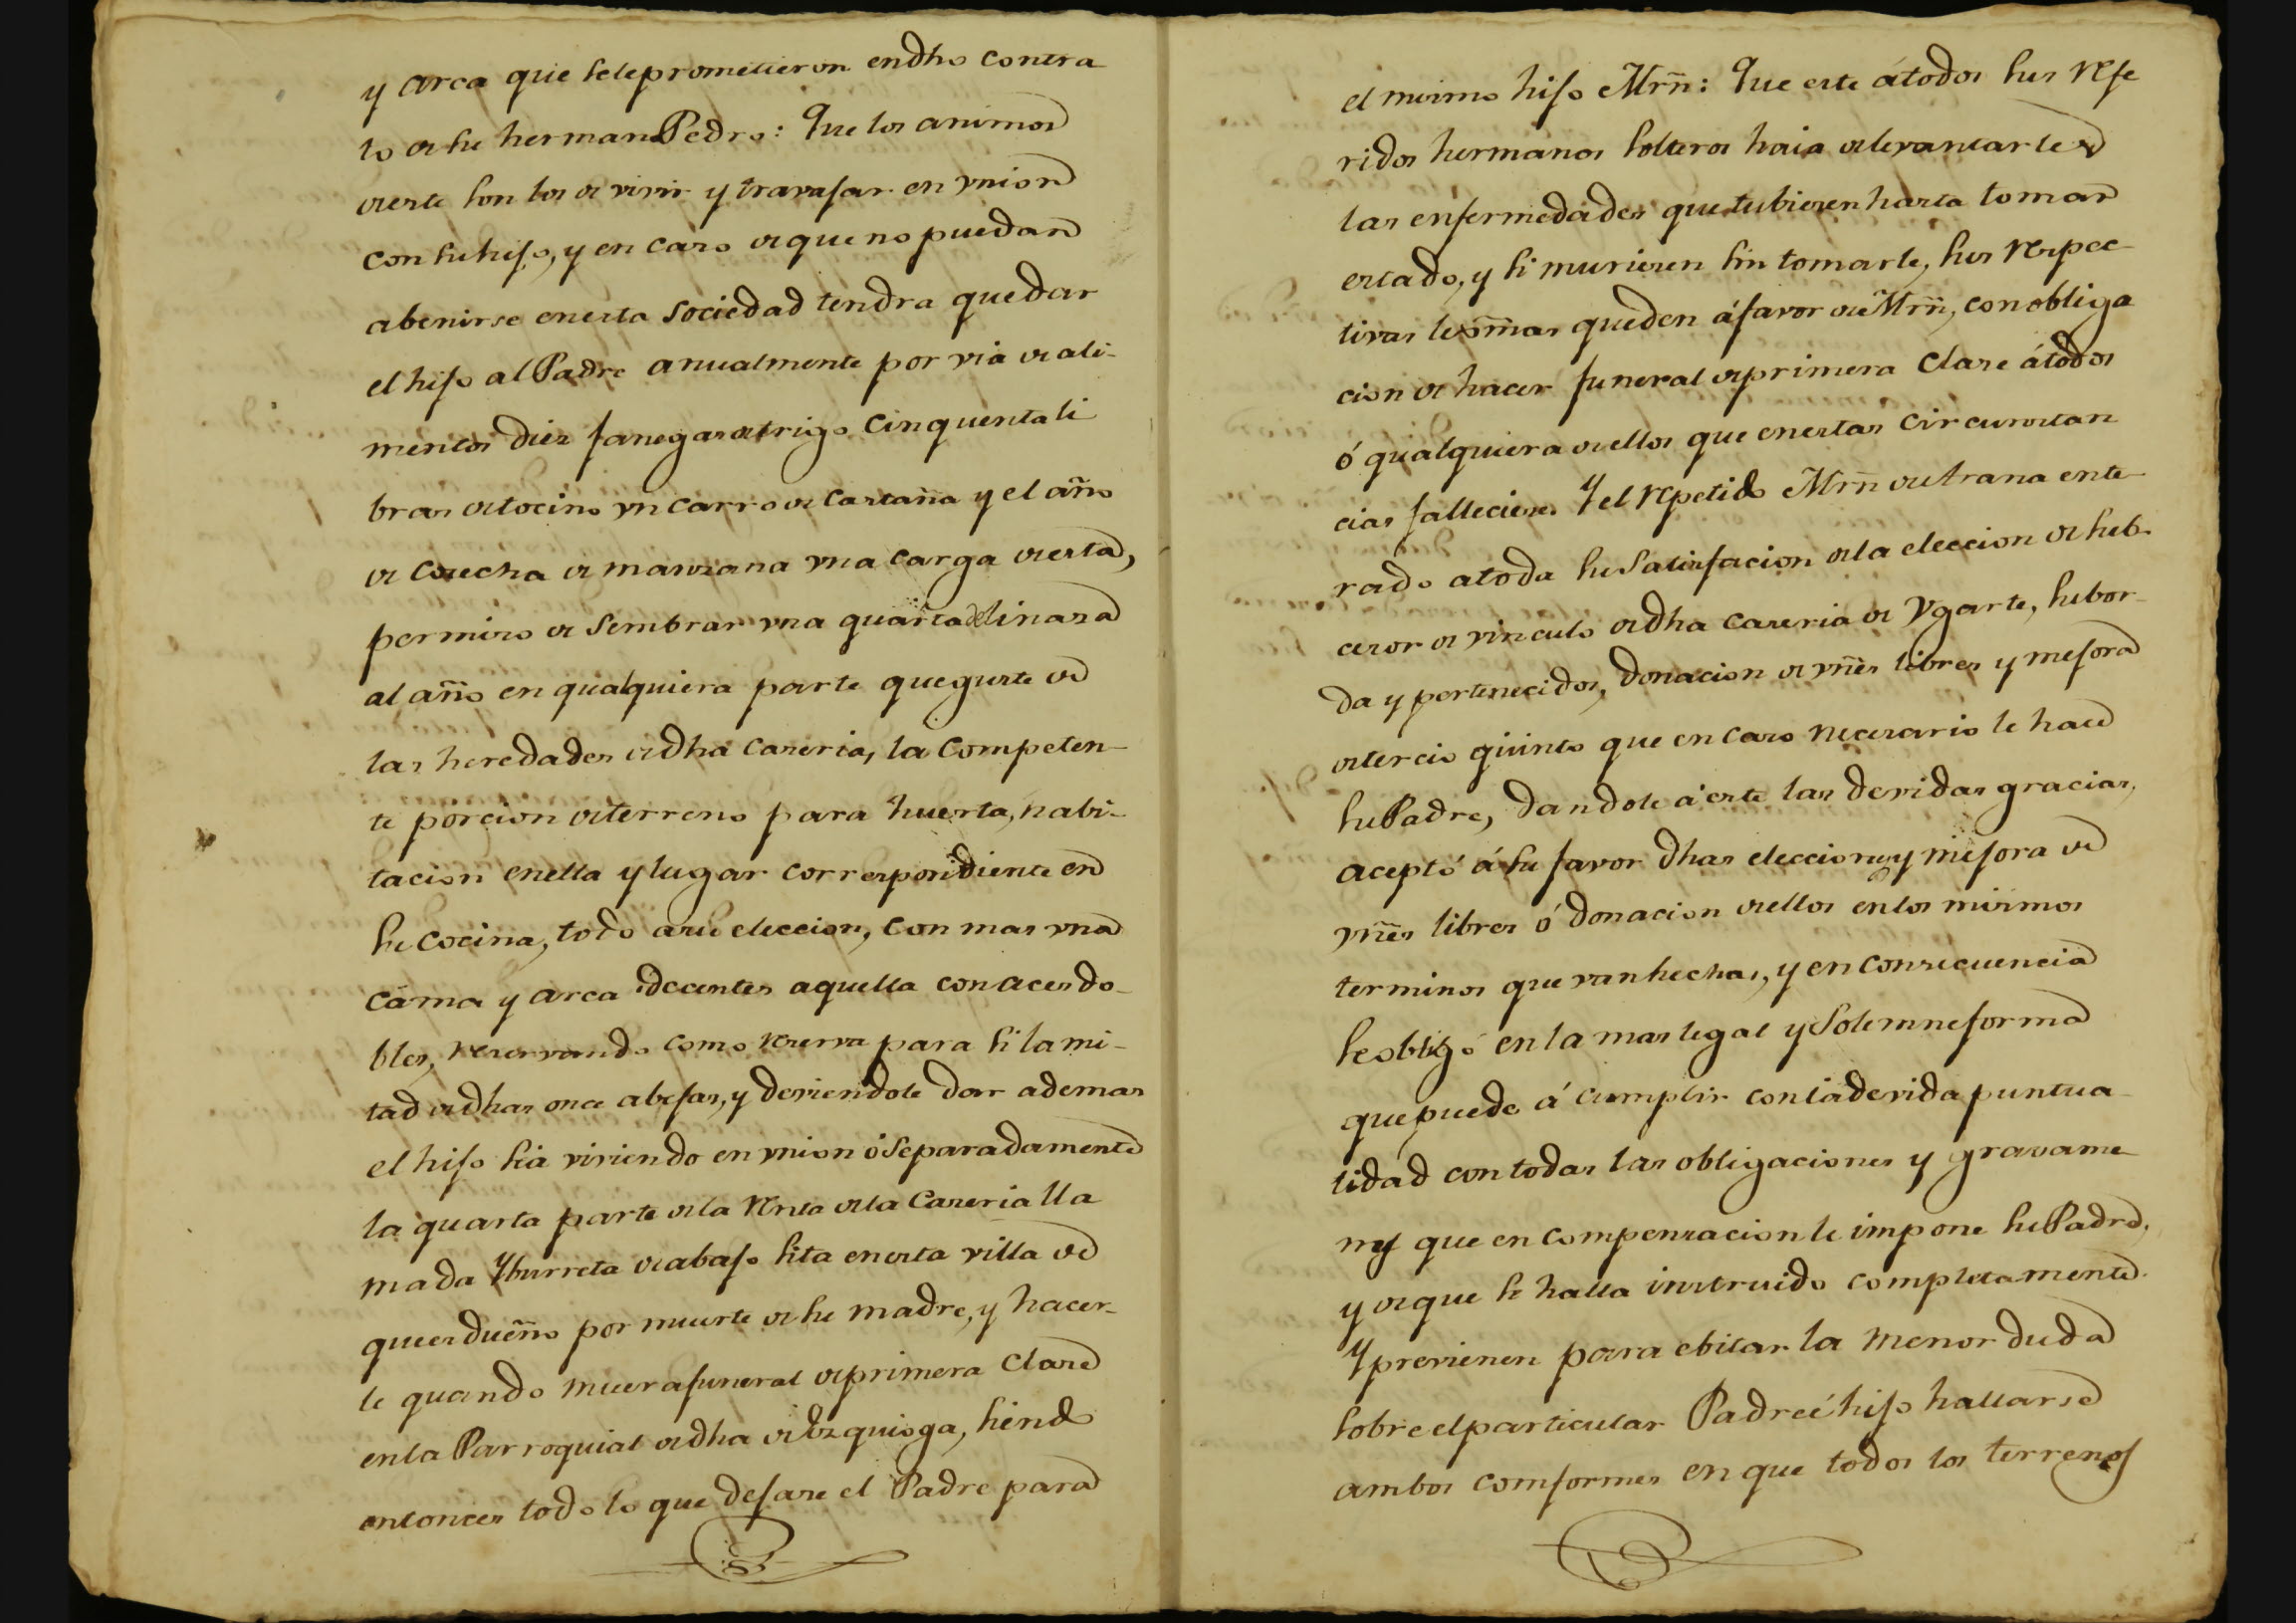 y arca que sele prometieron en dho contra
to a su hermano Pedro: Que los animos
de este son los de vivir y travajar en vnion
con su hijo, y en caso de que no puedan
abenirse en esta sociedad tendra que dar
el hijo al Padre anualmente por via de ali-
mentos diez fanegas de trigo cinquenta li
bras de tocino vn carro de castaña y el año
de cosecha de manzana vna carga de esta,
permiso de sembrar vna quarta de linaza
al año en qualquiera parte que guste de
las heredades de dha caseria, la competen-
te porcion de terreno para huerta, habi-
tacion en ella y lugar correspondiente en
su cocina, todo a su eleccion, con mas vna
cama y arca decentes aquella con acesdo-
bles, reservando como reserva para si la mi-
tad de dhas once abejas, y deviendole dar ademas
el hijo sea viviendo en vnion ó separadamente
la quarta parte de la renta de la Caseria lla
mada Yburreta de abajo sita en esta villa de
que es dueño por muerte de su madre, y hacer-
le quando muera funeral de primera clase
en la Parroquial de dha de Ezquioga, siendo
entonces todo lo que dejase el Padre para
el mismo hijo Mrñ: Que este á todos sus refe
ridos hermanos solteros haia de levantarles
las enfermedades que tubiesen hasta tomar
estado, y si muriesen sin tomarle, sus respec-
tivas lexmas queden á favor de Mrñ, con obliga
cion de hacer funeral de primera clase á todos
ó qualquiera de ellos que en estas circunstan
cias falleciere. Y el repetido Mrñ de Utrana ente
rado a toda su Satisfacion de la eleccion de sub-
cesor de vinculo de dha caseria de Ygarte, su bor-
da y pertenecidos, donacion de vnes libres y mejora
de tercio y quinto que en caso necesario le hace
su Padre, dandole á este las devidas gracias,
aceptó á su favor dhas elecciones y mejora de
vnes libres ó donacion de ellos en los mismos
terminos que van hechas, y en consecuencia
se obligó en la mas legal y solemne forma
que puede á cumplir con la devida puntua-
lidad con todas las obligaciones y gravame
nes que en compensacion le impone su Padre,
y de que se halla instruido completamente.
Y previenen para ebitar la menor duda
sobre el particular Padre é hijo hallarse
ambos comformes en que todos los terrenos